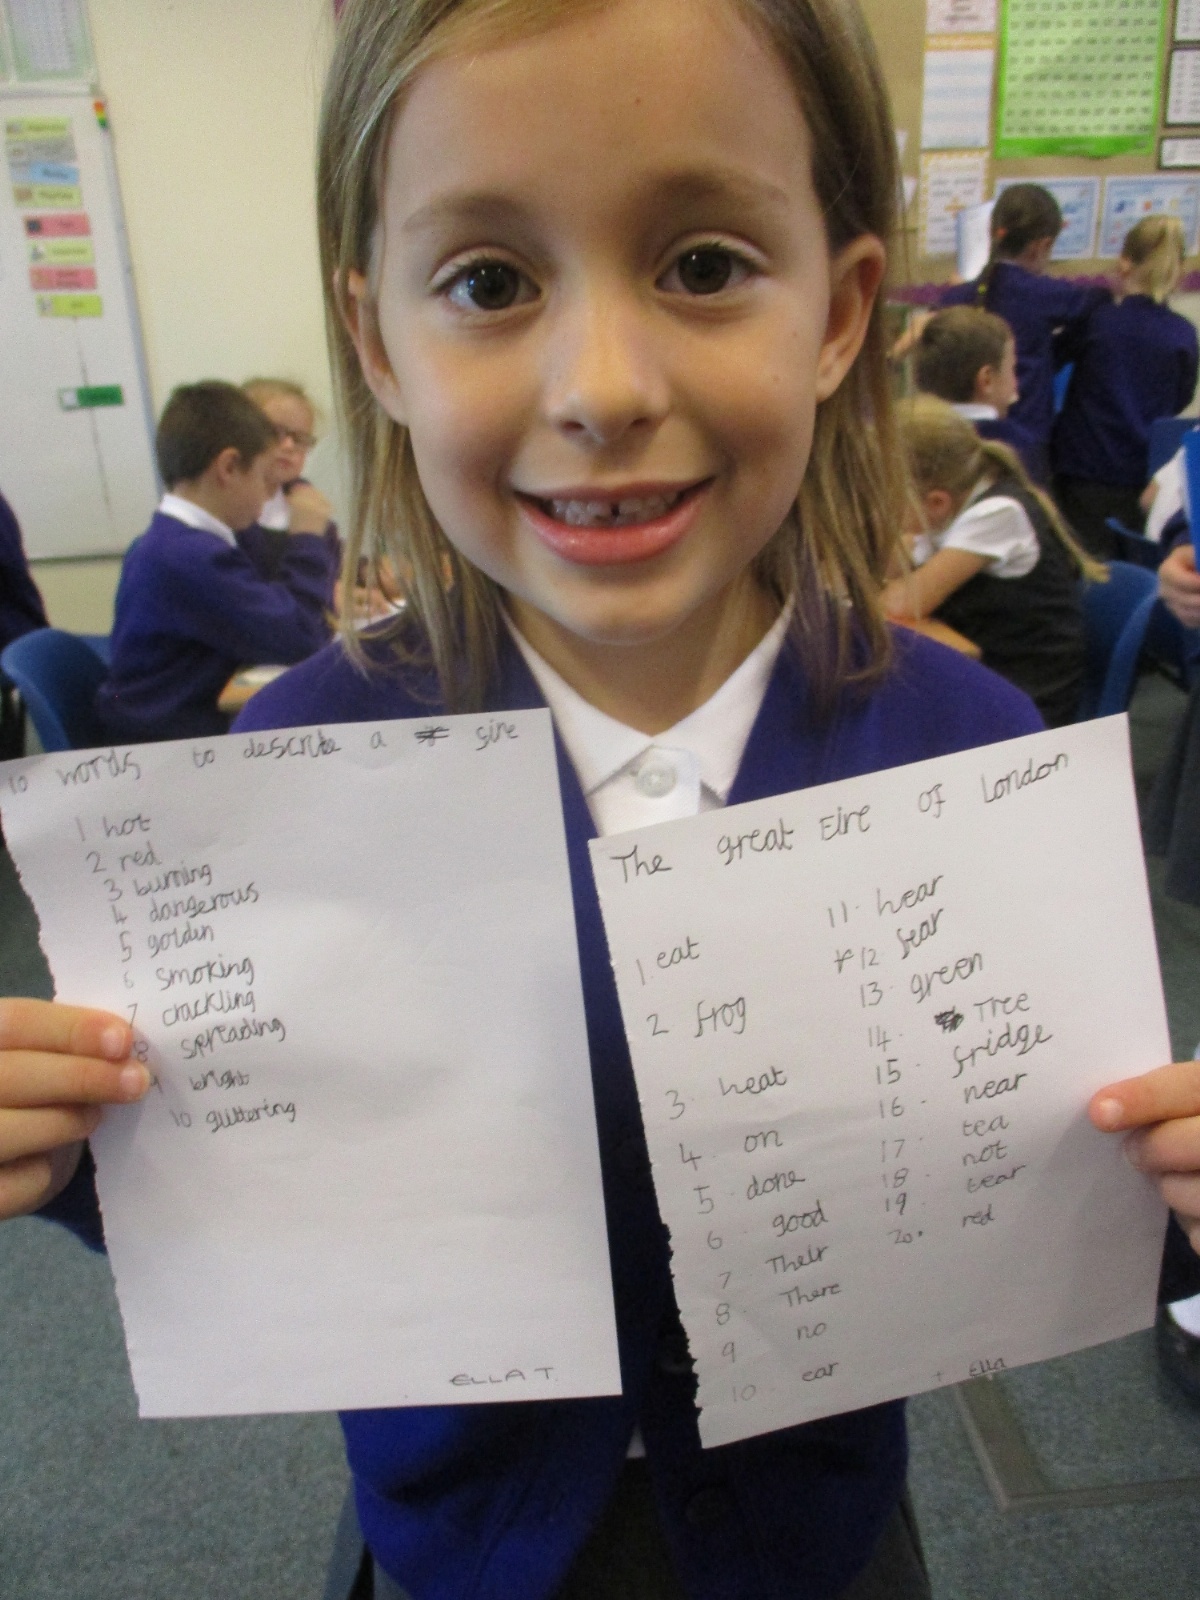 10 words to describe a fire
1 hot
2 red
3 burning
4 dangerous
5 golden
6 smoking
7 crackling
8 spreading
9 bright
10 glittering
ELLA T.
The great Fire of London
1. eat
2 frog
3 heat
4. on
5. done
6. good
7 Their
8. There
9 no
10. ear
11. hear
12 fear
13. green
14. Tree
15. fridge
16. near
17. tea
18. not
19. tear
20. red
Ella